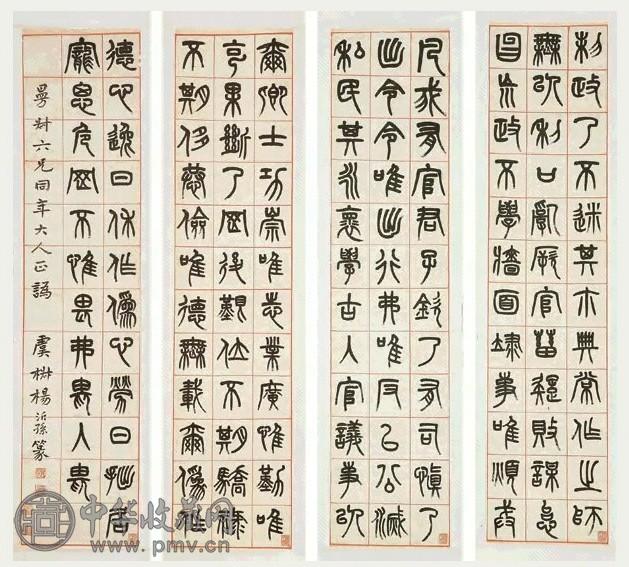 制政乃不迷其尒典常作之師
無以利口亂厥官蓄疑敗謀怠
曶巟政不學牆面䇐事唯煩戒
凡我有官君子欽乃有司慎乃
出令令唯出行弗唯反以公滅
私民其允褱學古入官議事以
爾卿士功崇唯志業廣惟勤唯
克果斷乃罔後艱位不期驕祿
不期侈恭儉唯德無載爾偽作
德心逸日休作偽心勞日拙居
寵思危罔不惟畏弗畏入畏
曼叔六兄同年大人正譌 楊沂孫篆
中华收藏网
www.pmv.cn